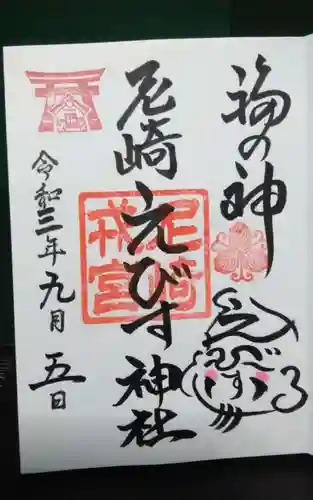 福の神
えびす
尼崎えびす神社
尼崎
戎宮
令和三年九月五日